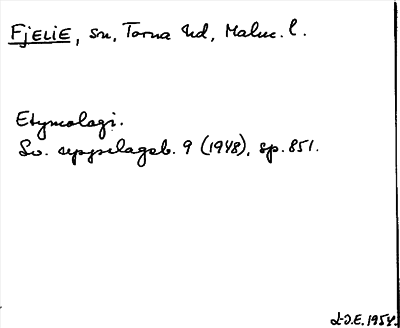 FJELIE, sn, Torna hd, Malm. l.
Etymologi.
Sv. uppslagsb. 9 (1948), sp. 851.
L-J.E. 1954.